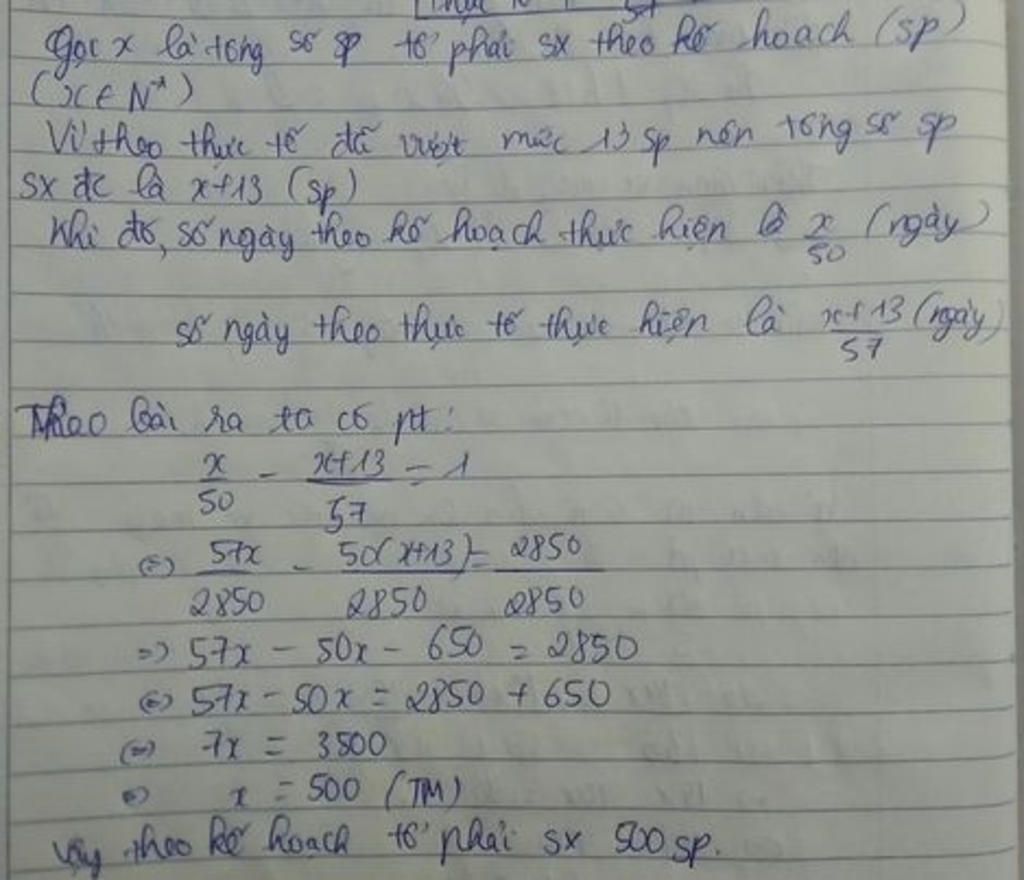 Gọi x là tổng số sp tổ phải sx theo kế hoạch (sp)
(x ∈ N*)
Vì theo thực tế đã vượt mức 13 sp nên tổng số sp
sx đc là x+13 (sp)
Khi đó, số ngày theo kế hoạch thực hiện là x/50 (ngày)
số ngày theo thực tế thực hiện là x+13/57 (ngày)
Theo bài ra ta có pt:
x/50 - x+13/57 = 1
⇔ 57x/2850 - 50(x+13)/2850 = 2850/2850
⇒ 57x - 50x - 650 = 2850
⇔ 57x - 50x = 2850 + 650
⇔ 7x = 3500
⇔ x = 500 (TM)
Vậy theo kế hoạch tổ phải sx 500 sp.